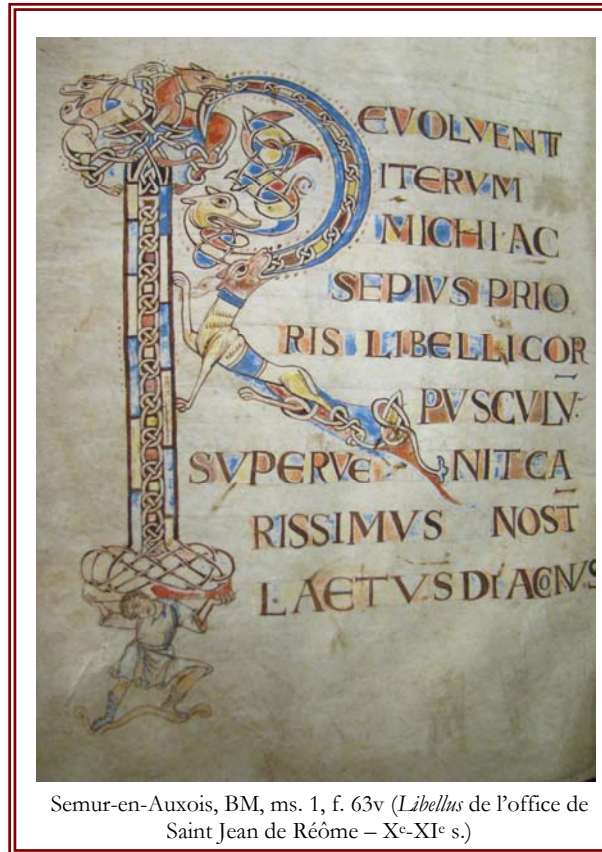 REVOLVENTI
ITERVM
MICHI·AC
SEPIVS PRIO
RIS LIBELLI COR
PVSCVLV·
SVPERVE NIT CA
RISSIMVS NOST
LAETVS DIACONVS
Semur-en-Auxois, BM, ms. 1, f. 63v (Libellus de l'office de
Saint Jean de Réôme – Xe-XIe s.)